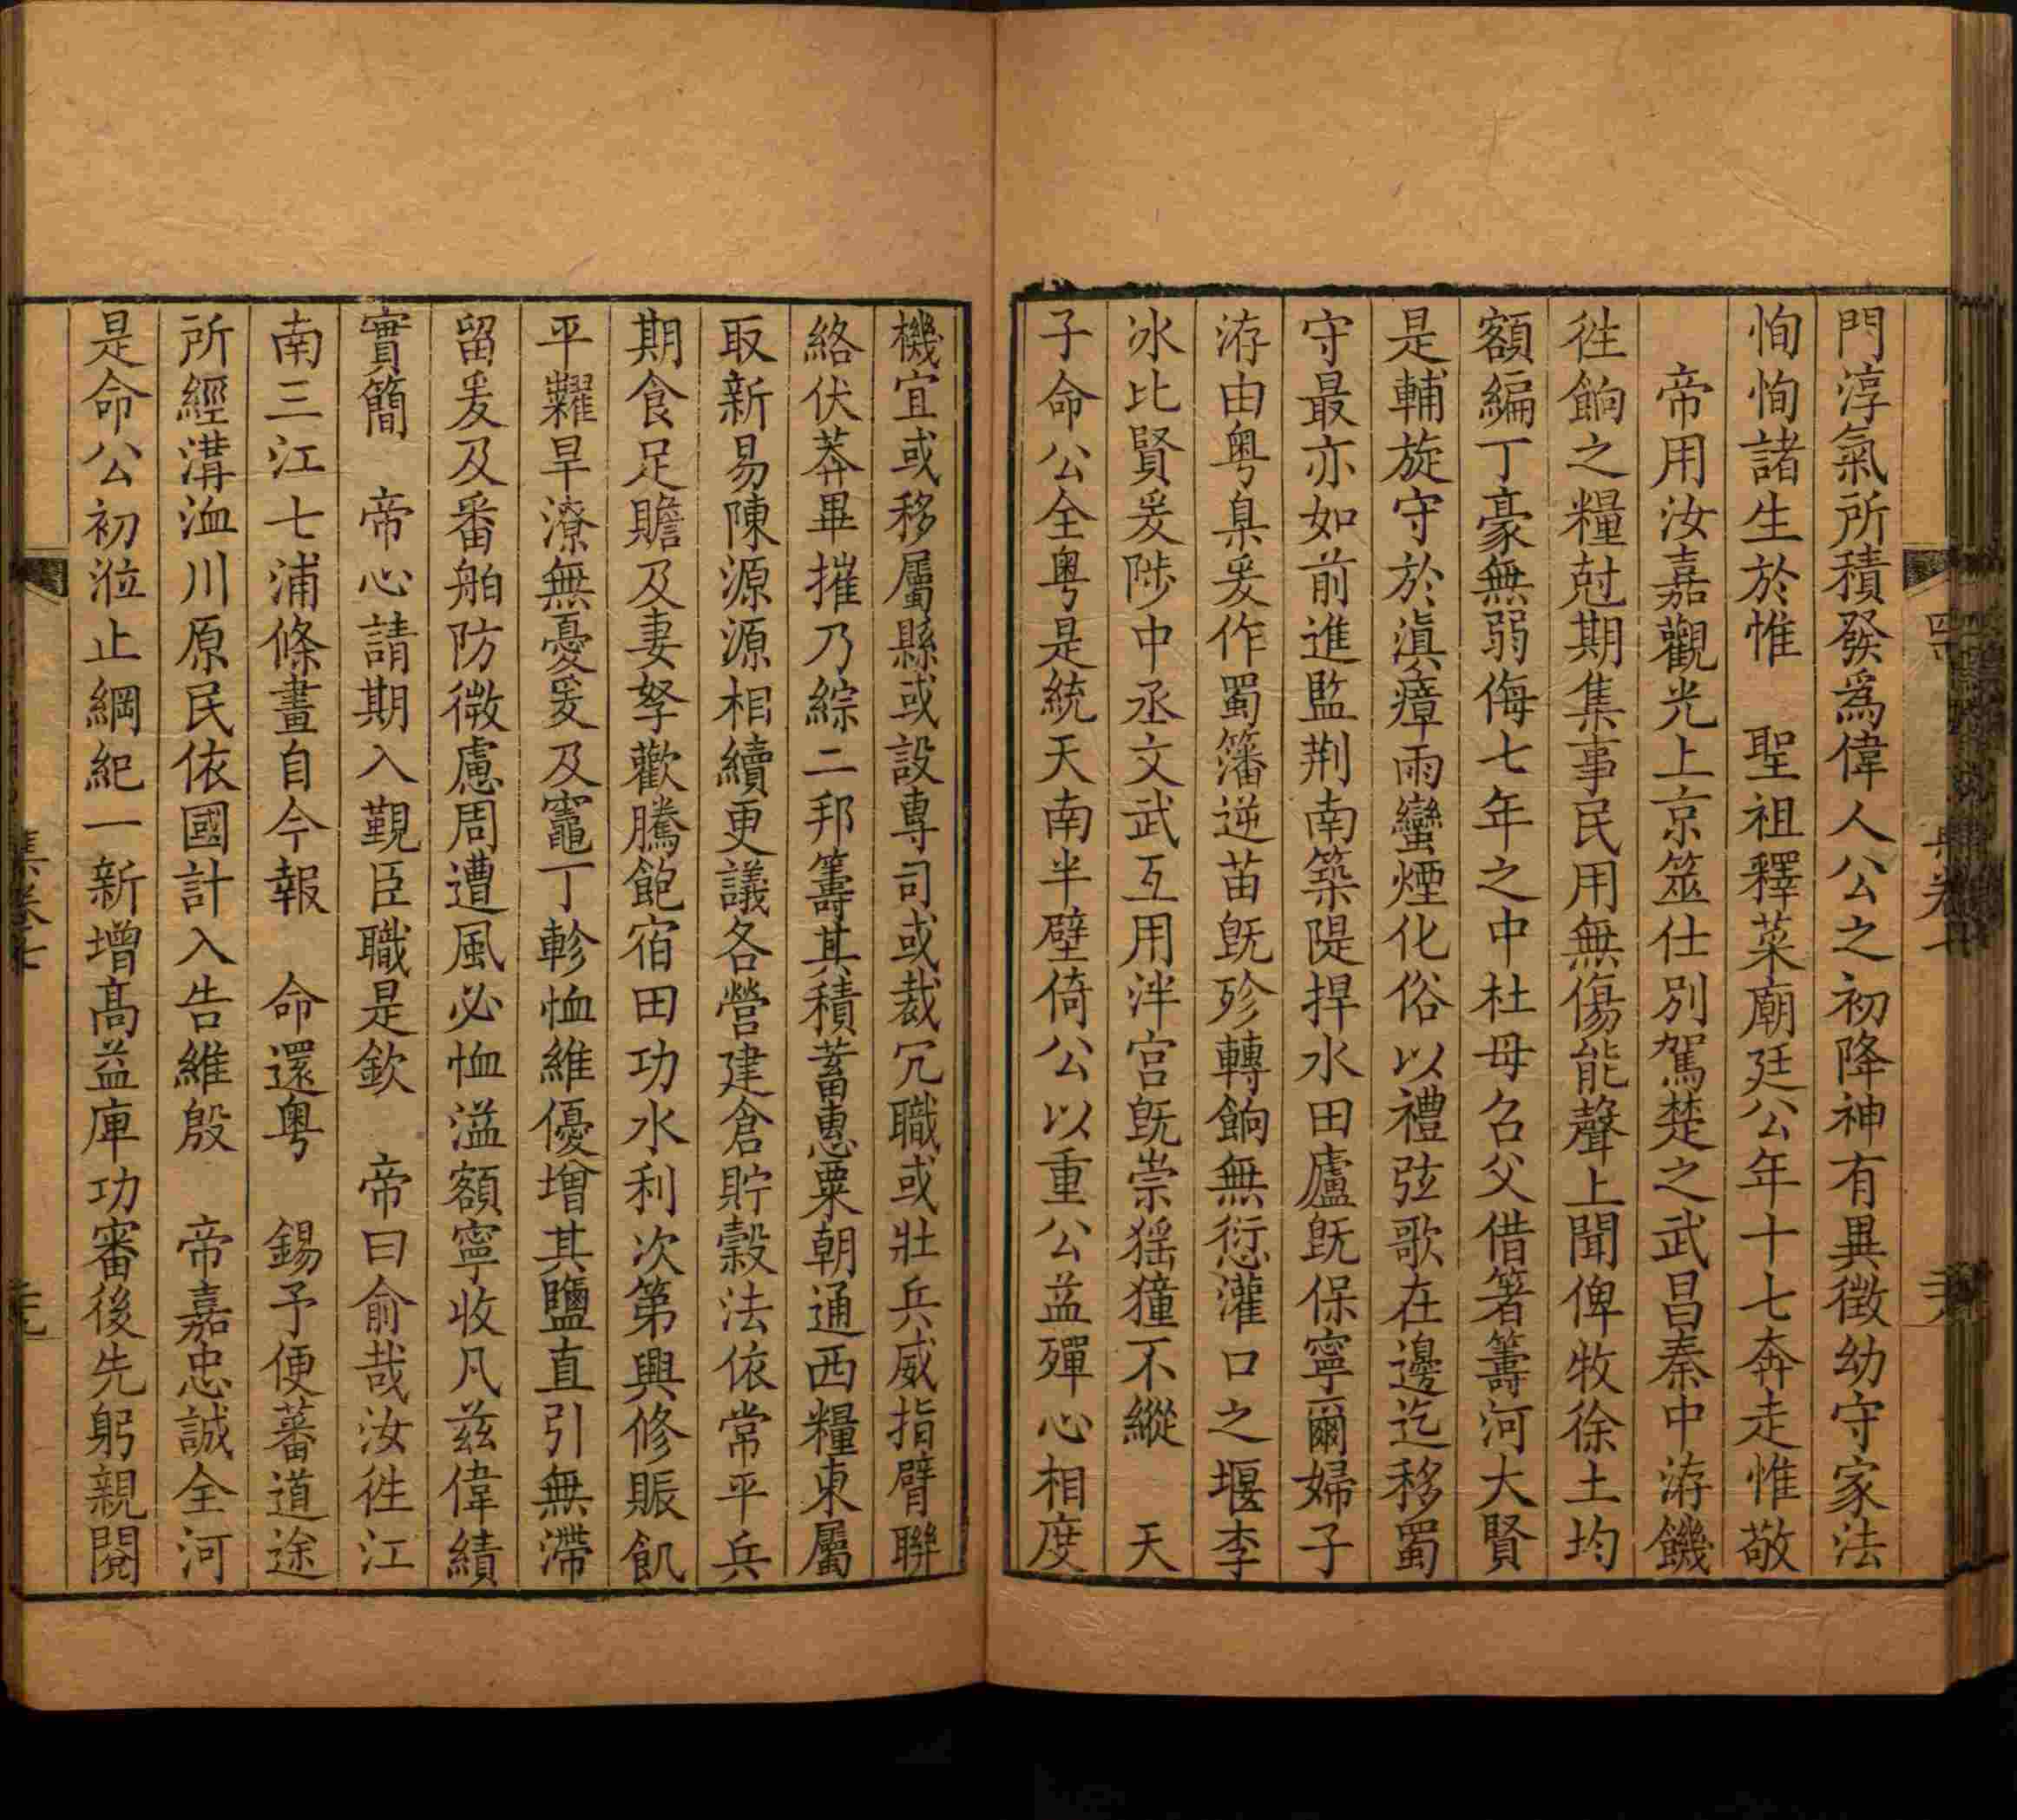 門淳氣所積發爲偉人公之初降神有異徵幼守家法
恂恂諸生於惟　聖祖釋菜廟廷公年十七奔走惟敬
帝用汝嘉觀光上京筮仕別駕楚之武昌秦中洊饑
徃餉之糧尅期集事民用無傷能聲上聞俾牧徐土均
額編丁豪無弱侮七年之中杜母召父借箸籌河大賢
是輔旋守於滇瘴雨蠻煙化俗以禮弦歌在邊迄移蜀
守最亦如前進監荆南築隄捍水田廬旣保寧爾婦子
洊由粵臬爰作蜀籓逆苗旣殄轉餉無愆灌口之堰李
冰比賢爰陟中丞文武互用泮宫旣崇猺獞不縱　天
子命公全粤是統天南半壁倚公以重公益殫心相度
機宜或移屬縣或設專司或裁冗職或壯兵威指臂聯
絡伏莽畢摧乃綜二邦籌其積蓄惠粟朝通西糧東屬
取新易陳源源相續更議各營建倉貯穀法依常平兵
期食足贍及妻孥歡騰飽宿田功水利次第興修賑飢
平糶旱潦無憂爰及竈丁軫恤維優增其鹽直引無滯
留爰及番舶防微慮周遭風必恤溢額寧收凡兹偉績
實簡　帝心請期入覲臣職是欽　帝曰俞哉汝徃江
南三江七浦條畫自今報　命還粤　錫予便蕃道途
所經溝洫川原民依國計入告維殷　帝嘉忠誠全河
是命公初涖止綱紀一新增高益庳功審後先躬親閱